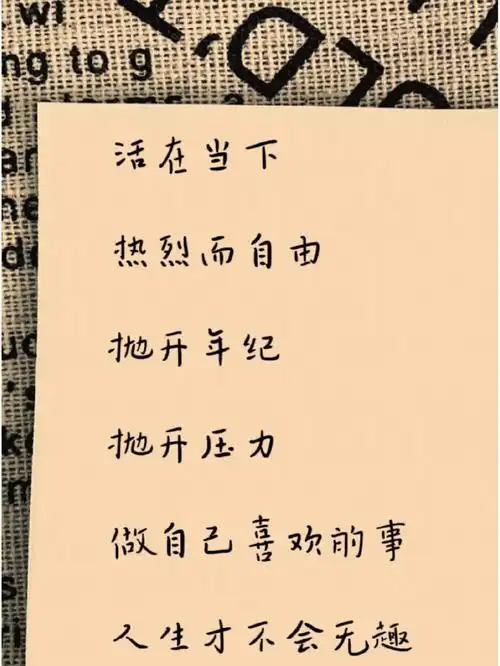 wi
ng to g
活在当下
热烈而自由
抛开年纪
抛开压力
做自己喜欢的事
人生才不会无趣